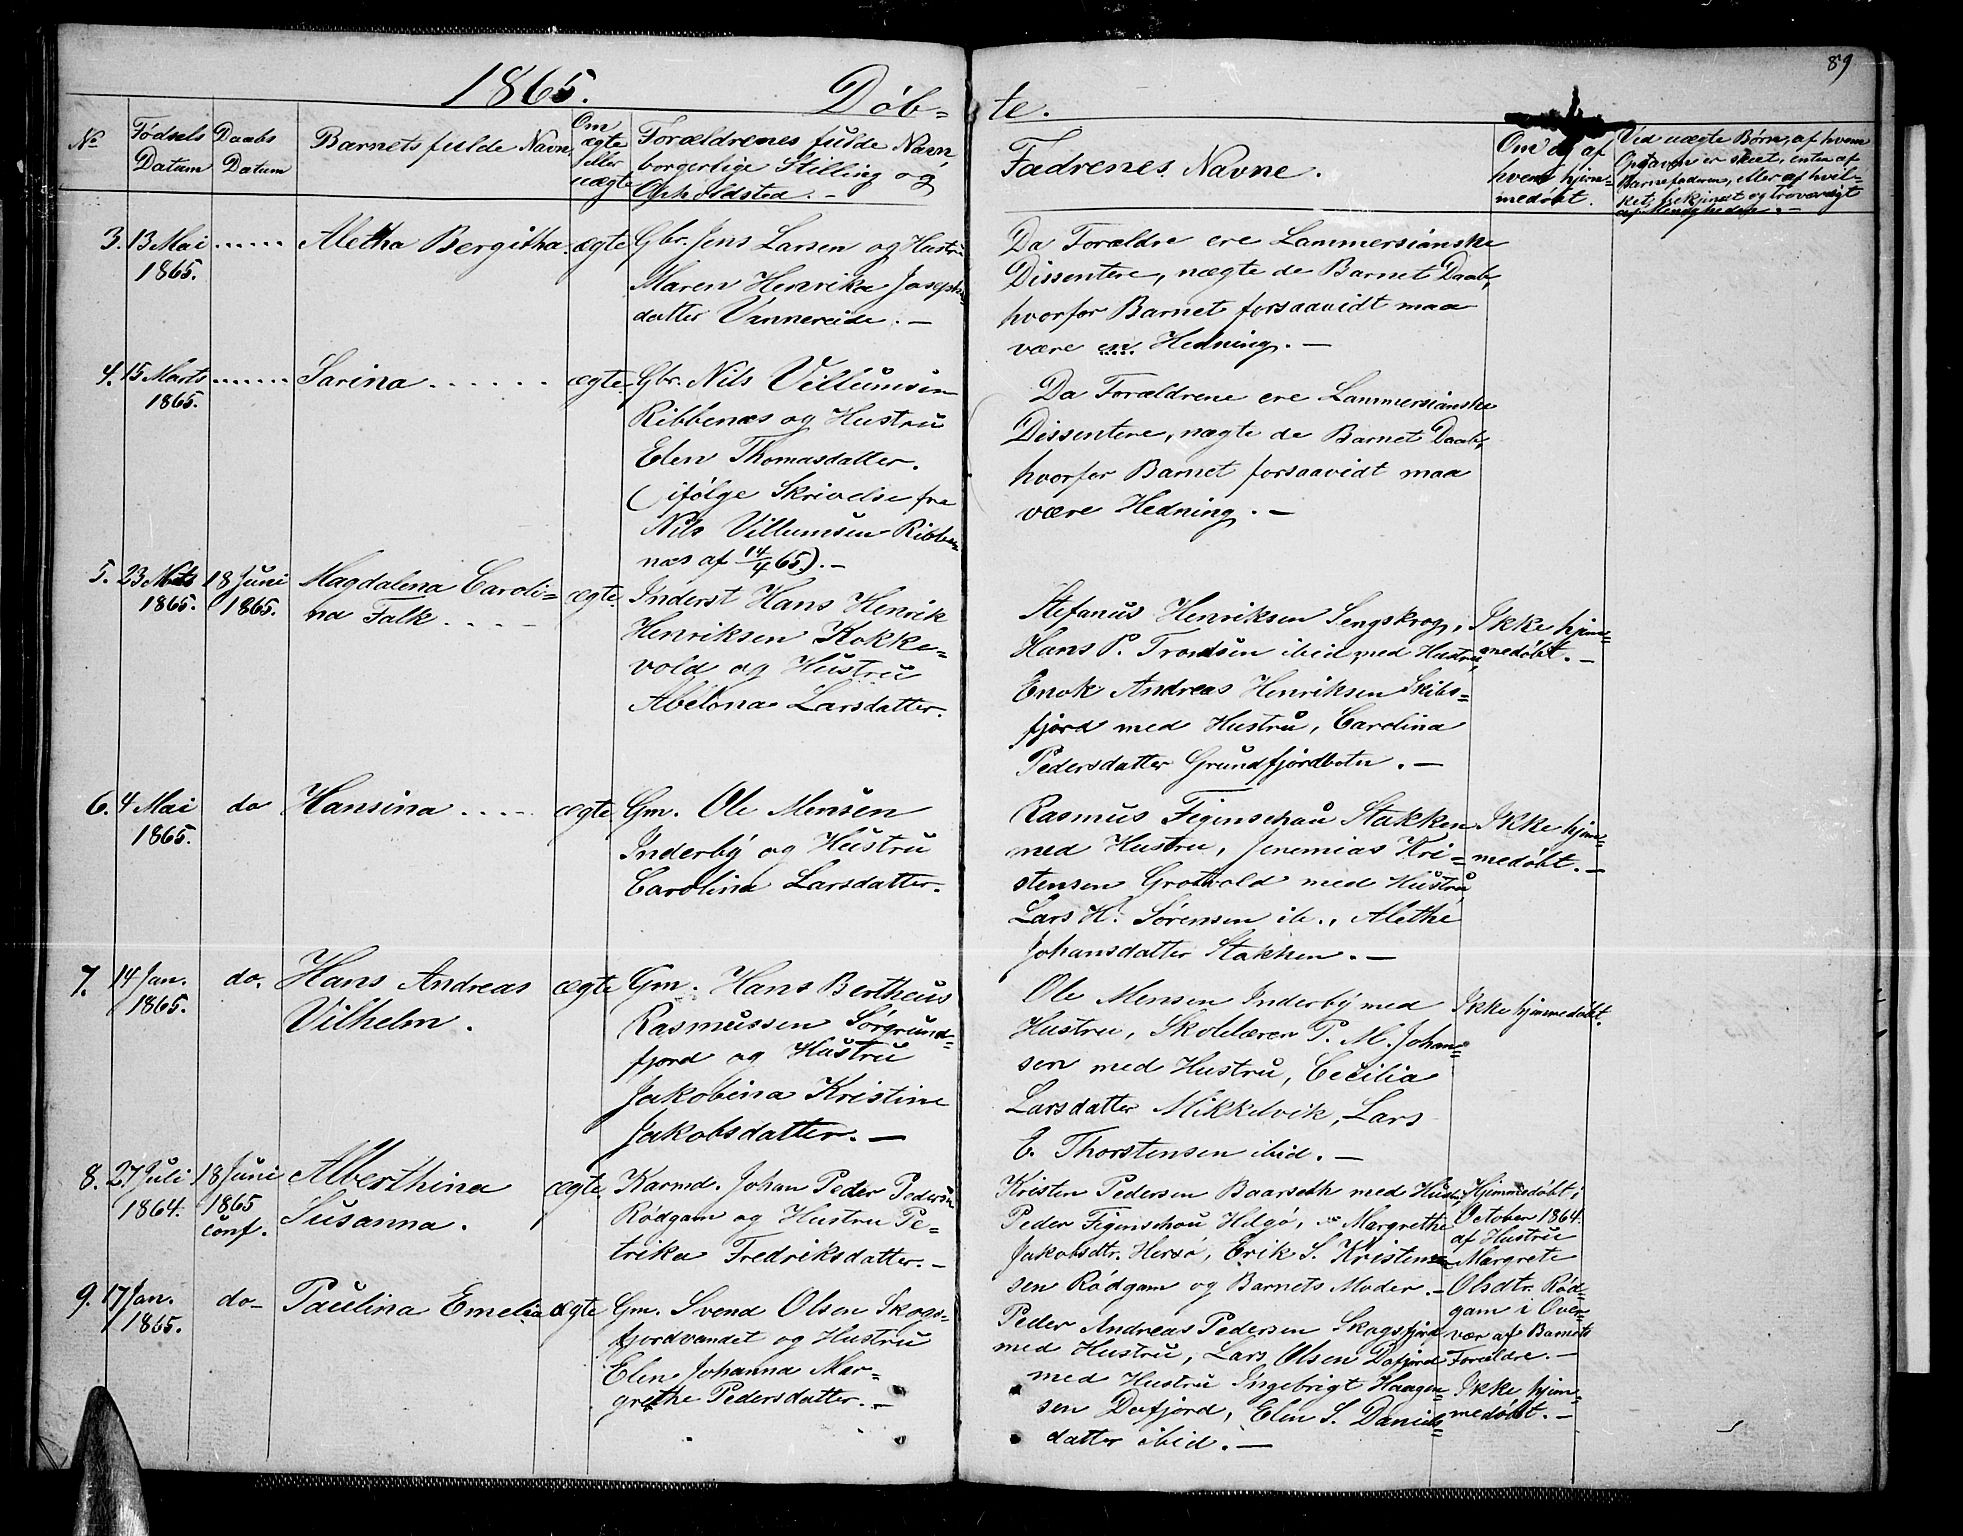 89
1865.
Døb-
te.
No
Fødsels
Datum
Daabs
Datum
Barnets fulde Navn
Om
ægte
eller
uægte
Forældrenes fulde Navn,
borgerlige Stilling og
Opholdsted. -
Fadrenes Navne.
Om og af
hvem hjem-
medøbt.
Ved uægte Børn, af hvem
Opgaven er skeet, enten af
Barnefaderen, eller af hvil-
ket bekjendt og troværdigt
af Menigheden. -
3. 13 Mai
1865.
......
Aletha Bergitha.
ægte
Gbr. Jens Larsen og Hustru
Maren Henrika Josephs-
datter Vannereide. -
Da Forældre ere Lammersianske
Dissentere, nægte de Barnet Daab,
hvorfor Barnet forsaavidt maa
være en Hedning. -
4. 15 Marts
1865.
.......
Sarina . . . . . .
ægte
Gbr. Nils Villumsen
Ribbenæs og Hustru
Elen Thomasdatter.
(ifølge Skrivelse fra
Nils Villumsen Ribbe-
næs af 14/4 65). -
Da Forældrene ere Lammersianske
Dissentere, nægte de Barnet Daab,
hvorfor Barnet forsaavidt maa
være Hedning. -
5. 23 Mts
1865.
18 Juni
1865.
Magdalena Caroli-
na Falk . . . -
ægte.
Inderst Hans Henrik
Henriksen Kokke-
vold og Hustru
Abelona Larsdatter.
Stefanus Henriksen Lengskrog,
Hans P. Trondsen ibid med Hustru,
Enok Andreas Henriksen Skibs-
fjord med Hustru, Carolina
Pedersdatter Grundfjordbotn. -
Ikke hjem-
medøbt. -
6. 4 Mai
1865.
do
Hansina . . . .
ægte
Gm. Ole Mensen
Inderby og Hustru
Carolina Larsdatter.
Rasmus Figenschau Stakken
med Hustru, Jeremias Kri-
stensen Grotvold med Hustru
Lars H. Sørensen ib., Alethe
Johansdatter Stakken. -
Ikke hjem-
medøbt. -
7. 14 Jan.
1865.
do.
Hans Andreas
Vilhelm.
ægte
Gm. Hans Bertheus
Rasmussen Sørgrund-
fjord og Hustru
Jakobina Kristine
Jakobsdatter. -
Ole Mensen Inderby med
Hustru, Skolelærer P. M. Johan-
sen med Hustru, Cecilia
Larsdatter Mikkelvik, Lars
E. Thorstensen ibid. -
Ikke hjemmedøbt.
8. 27 Juli
1864.
18 Juni
1865
conf.
Alberthina
Susanna.
ægte
Karmd. Johan Peder Pedersen
Rødgam og Hustru Pe-
trika Fredriksdatter. -
Kristen Pedersen Baarseth med Hustr,
Peder Figenschou Helgø, Margrethe
Jakobsdtr. Hersø, Erik S. Kristen-
sen Rødgam og Barnets Moder. -
Hjemmedøbt i
October 1864
af Hustru
Margrete
Olsdtr. Rød-
gam i Over-
vær af Barnets
Forældre. -
9. 17 Jan.
1865.
do-
Paulina Emelia
ægte
Gm. Svend Olsen Skogs-
fjordvandet og Hustru
Elen Johanna Mar-
grethe Pedersdatter. -
Peder Andreas Pedersen Skogsfjord
med Hustru, Lars Olsen Dafjord
med Hustru Ingebrigt Haagen-
sen Dafjord, Elen S. Daniels-
datter ibid. -
Ikke hjem-
medøbt. -